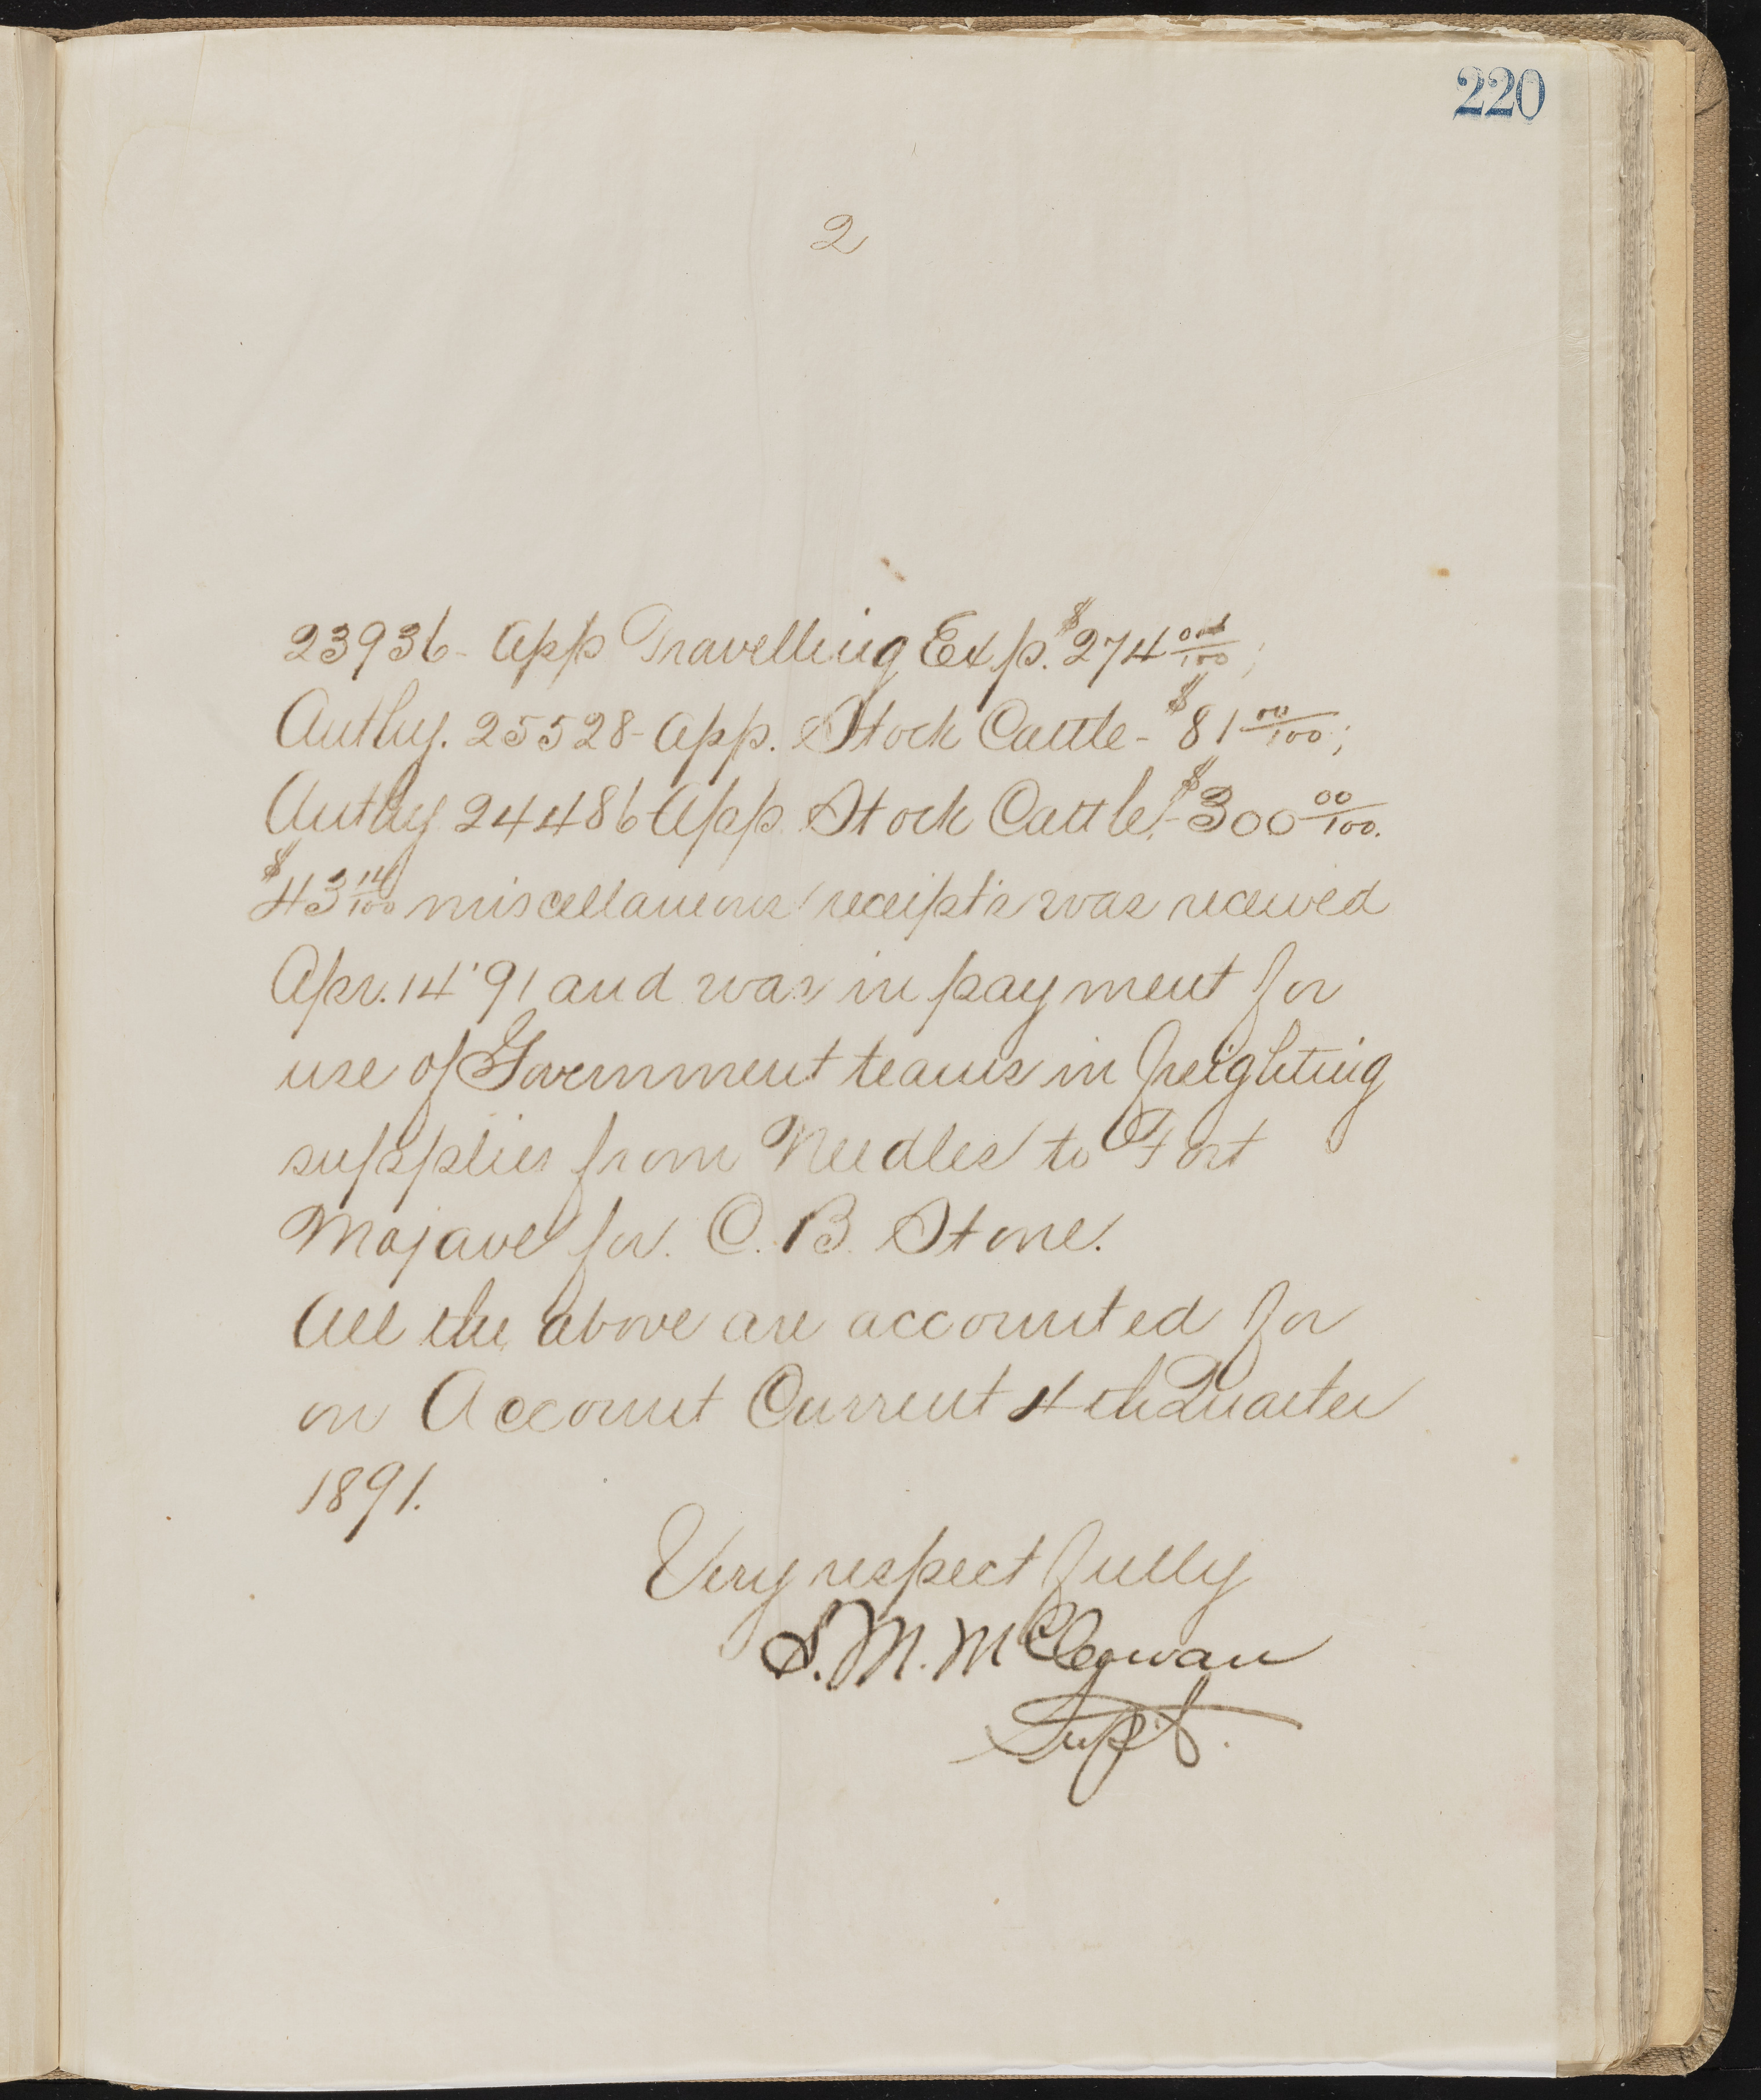 220
2
23936- App Travelling Exp. $274 00/100;
Authy. 25528- App. Stock Cattle- $81 00/100;
Authy 24486- App. Stock Cattle- $300 00/100.
$43 14/100 miscellaneous receipts was received
Apr. 14 '91 and was in payment for
use of Government teams in freighting
supplies from Needles to Fort
Mojave for C. B. Stone.
All the above are accounted for
on Account Current 4th Quarter
1891.
Very respectfully
S. M. McCowan
Supt.